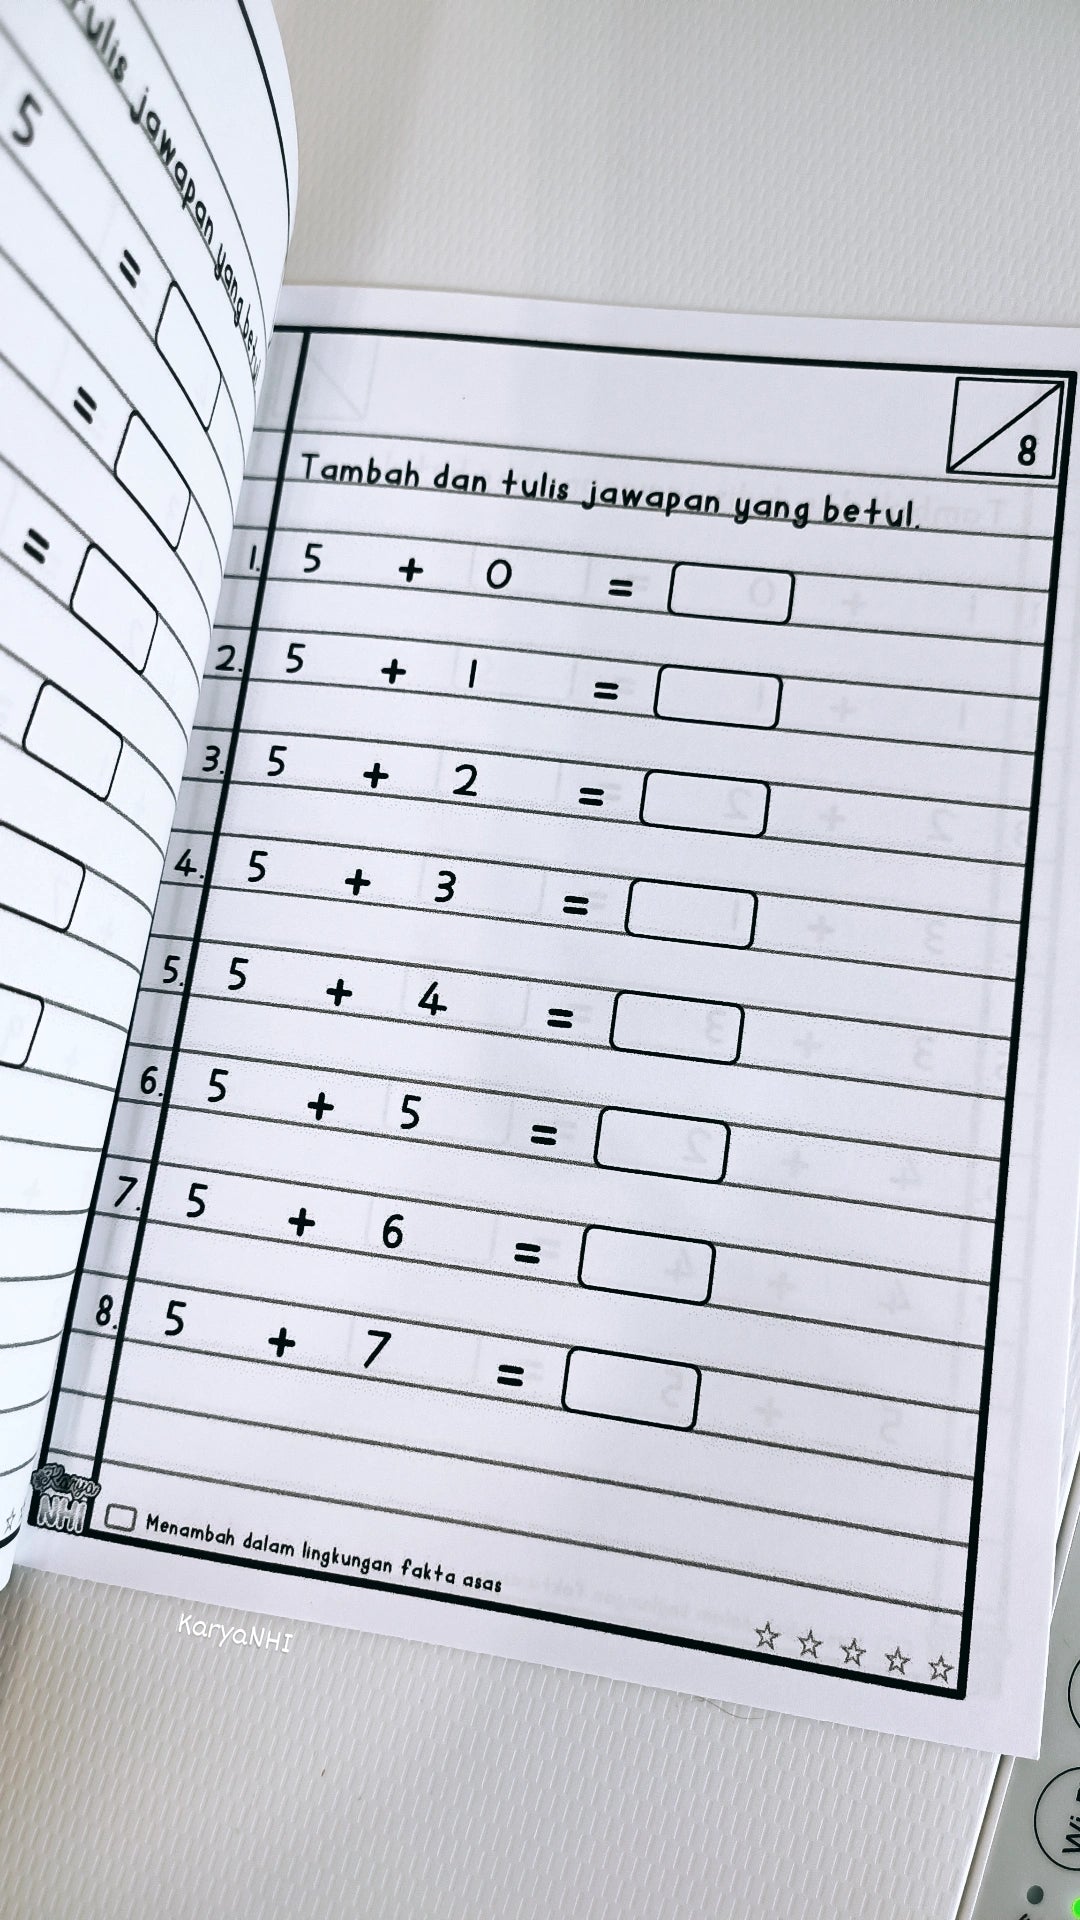 tulis jawapan yang betul
5
=
=
=
8
Tambah dan tulis jawapan yang betul.
1. 5 + 0 =
2. 5 + 1 =
3. 5 + 2 =
4. 5 + 3 =
5. 5 + 4 =
6. 5 + 5 =
7. 5 + 6 =
8. 5 + 7 =
Karya
NHI
Menambah dalam lingkungan fakta asas
KaryaNHI